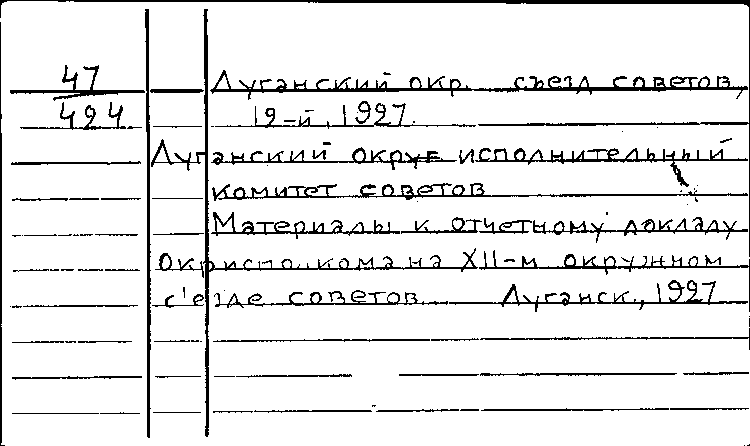 47
494
Луганский окр. съезд советов,
12-й, 1927.
Луганский окруж исполнительный
комитет советов
Материалы к отчетному докладу
Окрисполкома на XII-м окружном
с'езде советов Луганск., 1927